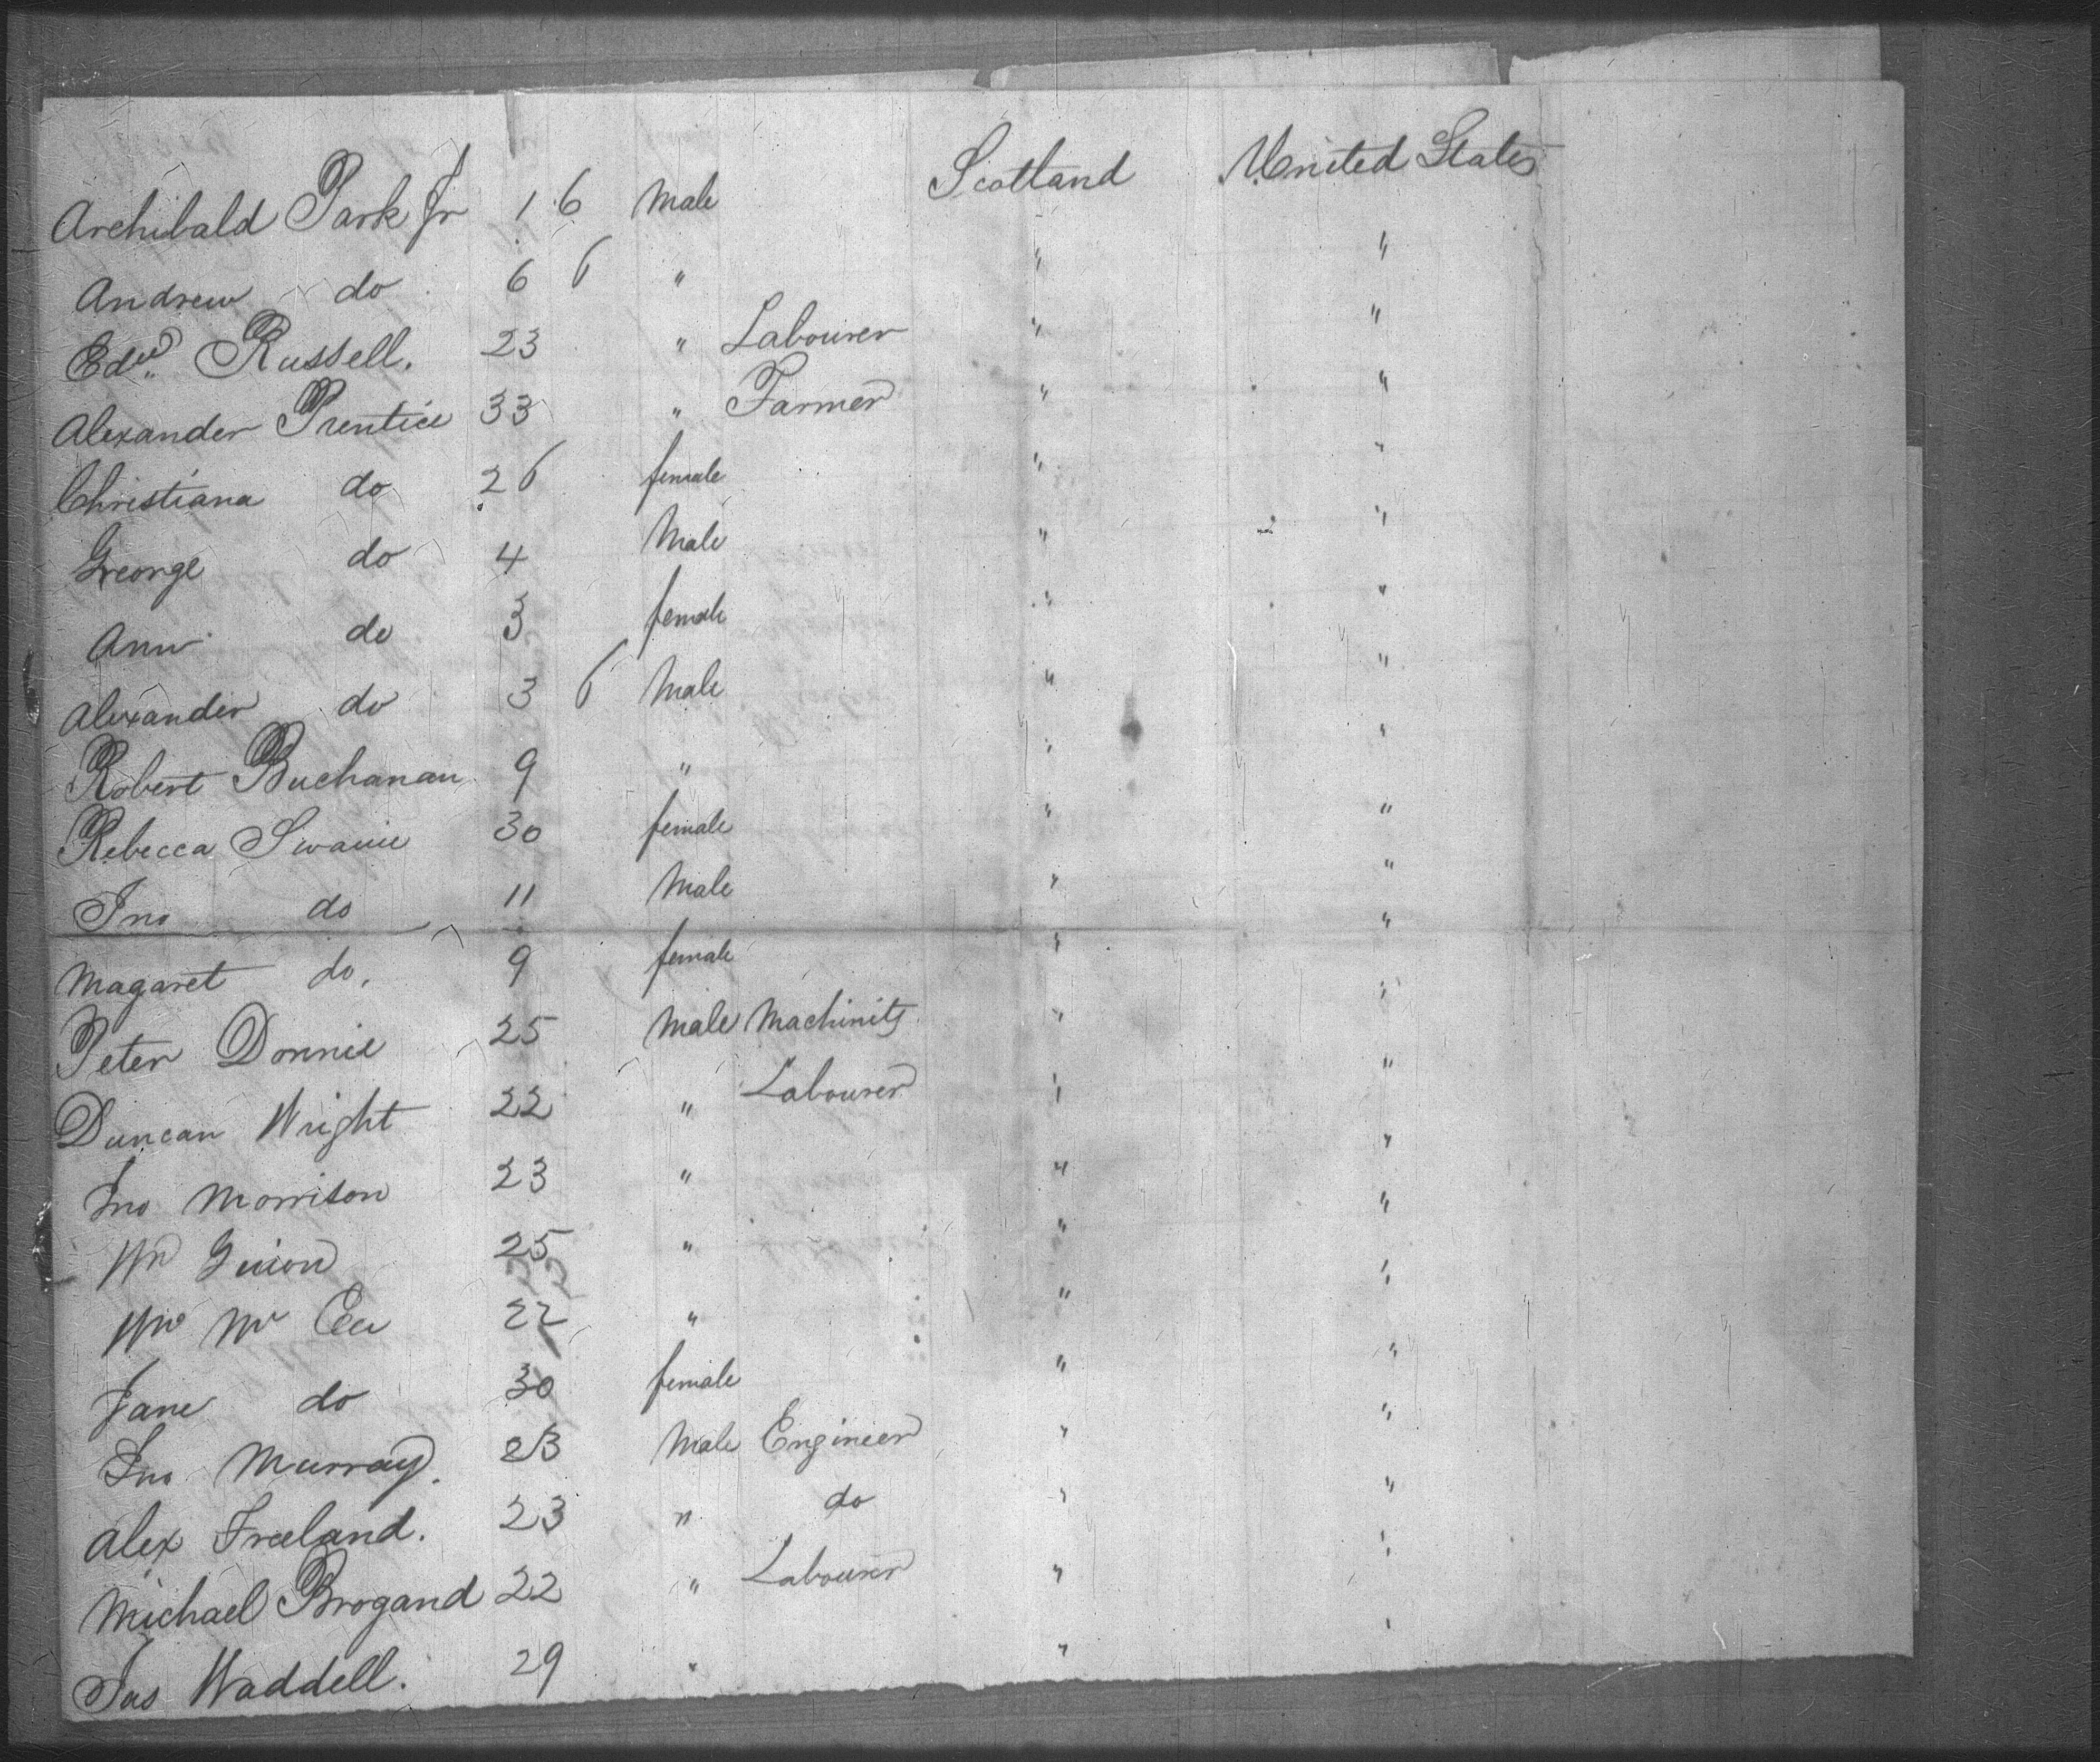 Archibald Park Jr 1 6 Male Scotland United States
Andrew do 6 6 " " "
Edwd. Russell. 23 " Labourer " "
Alexander Prentice 33 " Farmer " "
Christiana do 26 female " "
George do 4 Male " "
Ann do 3 female " "
Alexander do 3 6 Male " "
Robert Buchanan 9 " " "
Rebecca Swaine 30 female " "
Jno do 11 Male " "
Magaret do, 9 female " "
Peter Donnie 25 Male Machinits " "
Duncan Wright 22 " Labourer " "
Jno Morrison 23 " " "
Wm 25 " " "
Wm Mc 22 " " "
Jane do 30 female " "
Jno Murray. 23 Male Engineer " "
Alex Freeland. 23 " do " "
Michael Brogand 22 " Labourer " "
Jas Waddell. 29 " " "